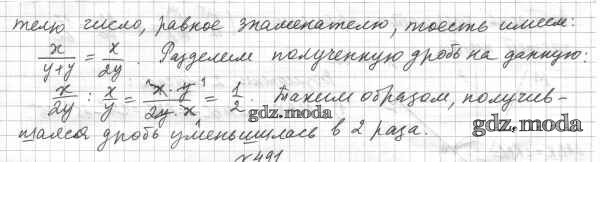 телю число, равное знаменателю, тоесть имеем:
x/(y+y) = x/2y. Разделим полученную дробь на данную:
x/2y : x/y = (x · y)/(2y · x) = 1/2. Таким образом, получив-
gdz.moda
шаяся дробь уменьшилась в 2 раза. gdz.moda
№491